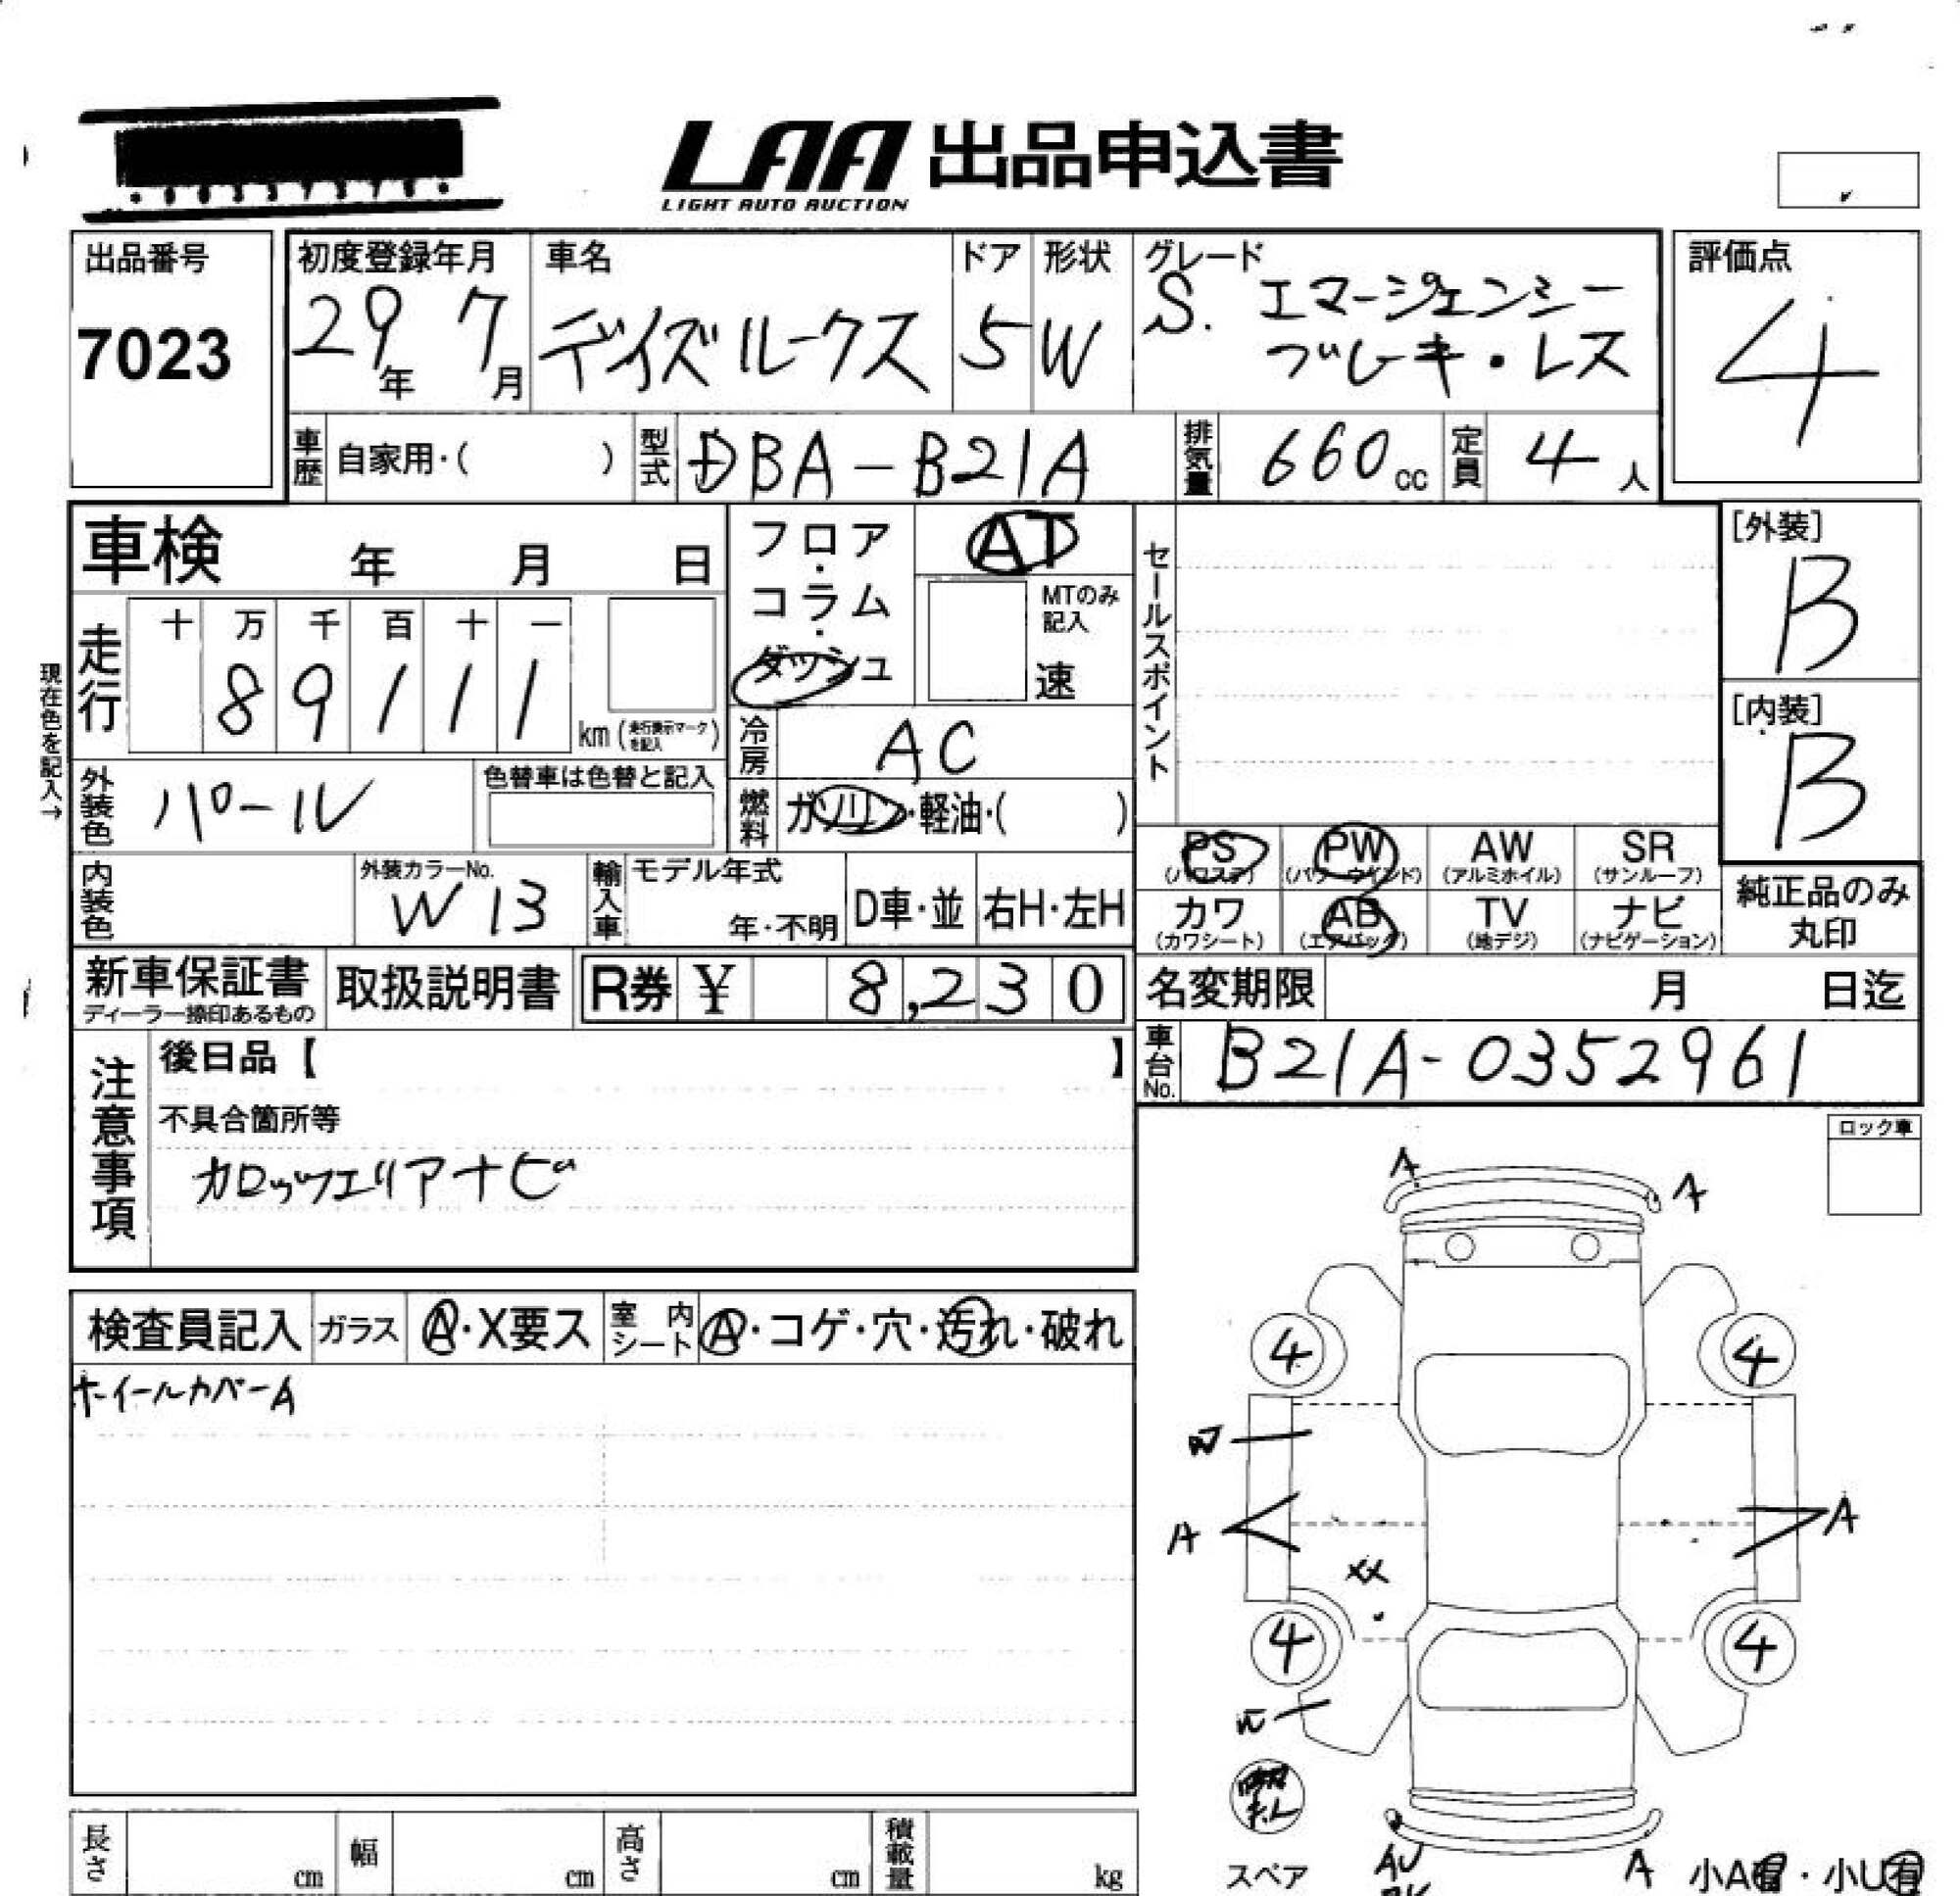 LAA 出品申込書
LIGHT AUTO AUCTION
出品番号 7023
初度登録年月 29年 7月
車名 デイズルークス
ドア 5
形状 W
グレード S. エマージェンシー
ブレーキ・レス
評価点 4
車歴 自家用・( )
型式 DBA-B21A
排気量 660cc
定員 4人
車検 年 月 日
フロア・コラム・ダッシュ
AT
MTのみ記入
速
セールスポイント
[外装] B
[内装] B
現在色を記入→
走行 十 万 千 百 十 一
8 9 1 1 1
km (走行表示マークを記入)
冷房 AC
外装色 パール
色替車は色替と記入
燃料 ガソリン・軽油・( )
PS (パワステ) PW (パワーウインド) AW (アルミホイル) SR (サンルーフ)
カワ (カワシート) AB (エアバッグ) TV (地デジ) ナビ (ナビゲーション)
純正品のみ
丸印
内装色
外装カラーNo. W13
輸入車 モデル年式
年・不明
D車・並 右H・左H
新車保証書
ディーラー捺印あるもの
取扱説明書
R券 ¥ 8,230
名変期限 月 日迄
車台No. B21A-0352961
注意事項
後日品【 】
不具合箇所等
カロッツェリアナビ
ロック車
A A
検査員記入 ガラス A・X要ス 室内シート A・コゲ・穴・汚れ・破れ
ホイールカバーA
4 4
A A
XX
4 4
長さ cm 幅 cm 高さ cm 積載量 kg
スペア
A
小A有・小U有